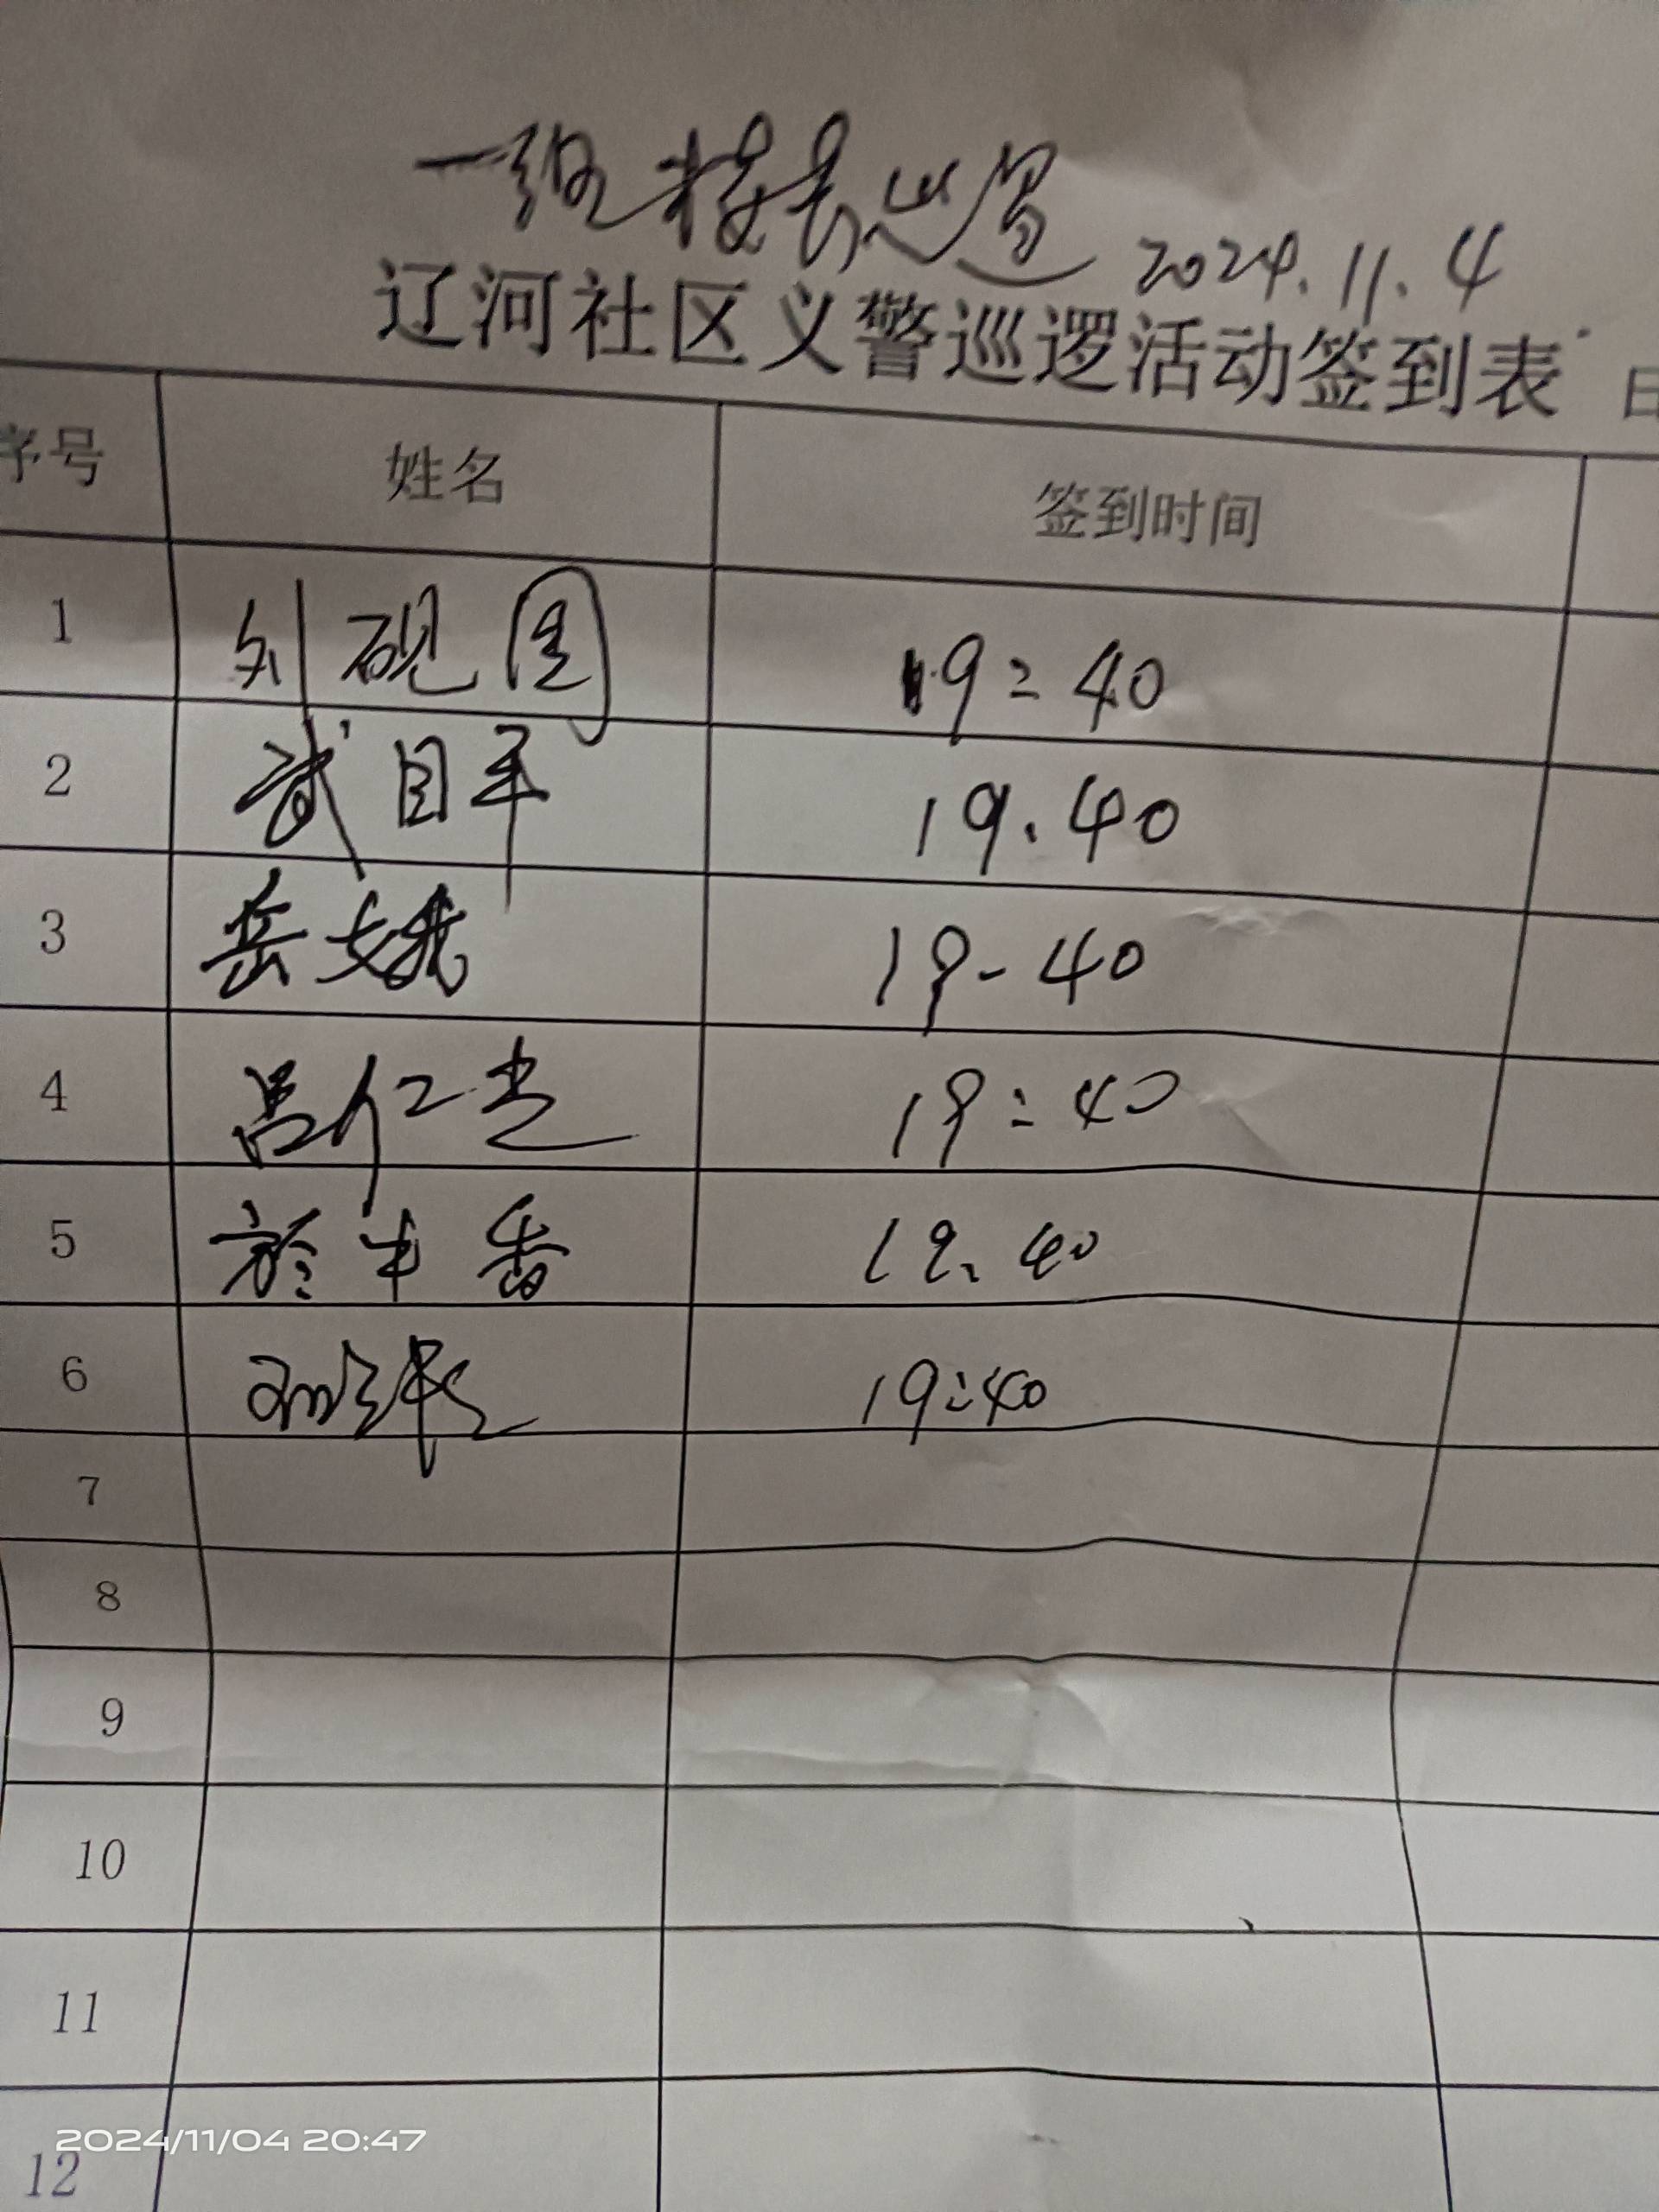 一级楼长巡逻 2024.11.4
辽河社区义警巡逻活动签到表 日
序号 姓名 签到时间
1 刘砚国 19:40
2 武自平 19.40
3 岳娥 19-40
4 吕仁志 19:40
5 于香 19.40
6 19:40
7
8
9
10
11
12
2024/11/04 20:47